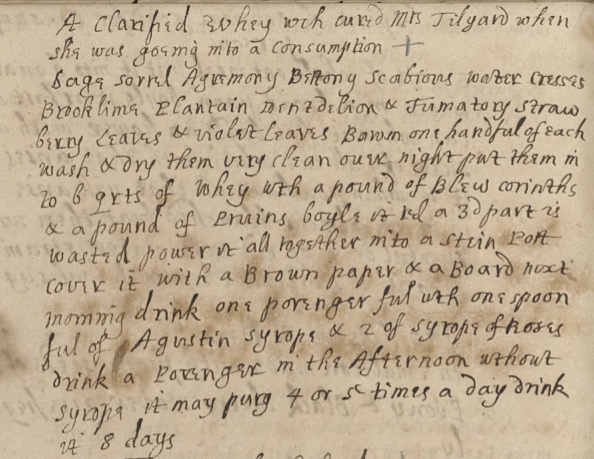 A Clarified Whey wch cured Mrs Tilyard when
she was goeing into a consumption +
Sage sorrel Agremony Bettony Scabious water cresses
Brooklime Plantain Dendelion & Fumatory straw
berry Leaves & violet Leaves Bawm one handful of each
wash & dry them very clean over night put them in
to 6 qrts of whey wth a pound of Blew corinths
& a pound of Pruins boyle it tel a 3d part is
wasted power it all together into a stein Pott
cover it with a Brown paper & a Board next
morning drink one porenger ful wth one spoon
ful of Agustin syrope & 2 of syrope of Roses
drink a Porenger in the Afternoon without
syrope it may purg 4 or 5 times a day drink
it 8 days